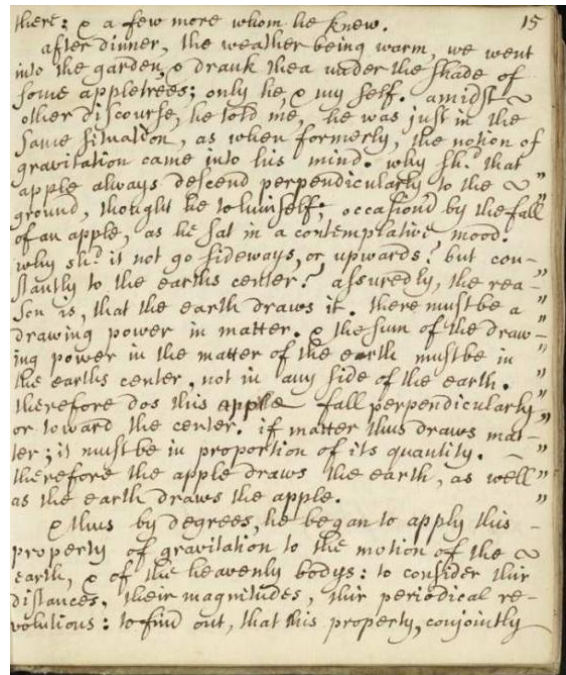 there: & a few more whom he knew. 15
after dinner, the weather being warm, we went
into the garden, & drank thea under the shade of
some appletrees; only he, & my self. amidst ~
other discourse, he told me, he was just in the
same situation, as when formerly, the notion of
gravitation came into his mind. why shd. that
apple always descend perpendicularly to the ~ "
ground, thought he to himself; occasion'd by the fall
of an apple, as he sat in a contemplative mood.
why shd. it not go sideways, or upwards? but con-
stantly to the earths center? assuredly, the rea- "
son is, that the earth draws it. there must be a "
drawing power in matter. & the sum of the draw- "
ing power in the matter of the earth must be in "
the earths center, not in any side of the earth. "
therefore dos this apple fall perpendicularly "
or toward the center. if matter thus draws mat- "
ter; it must be in proportion of its quantity. - "
therefore the apple draws the earth, as well "
as the earth draws the apple. "
& thus by degrees, he began to apply this -
property of gravitation to the motion of the ~
earth, & of the heavenly bodys: to consider thir
distances, their magnitudes, thir periodical re-
volutions: to find out, that this property, conjointly